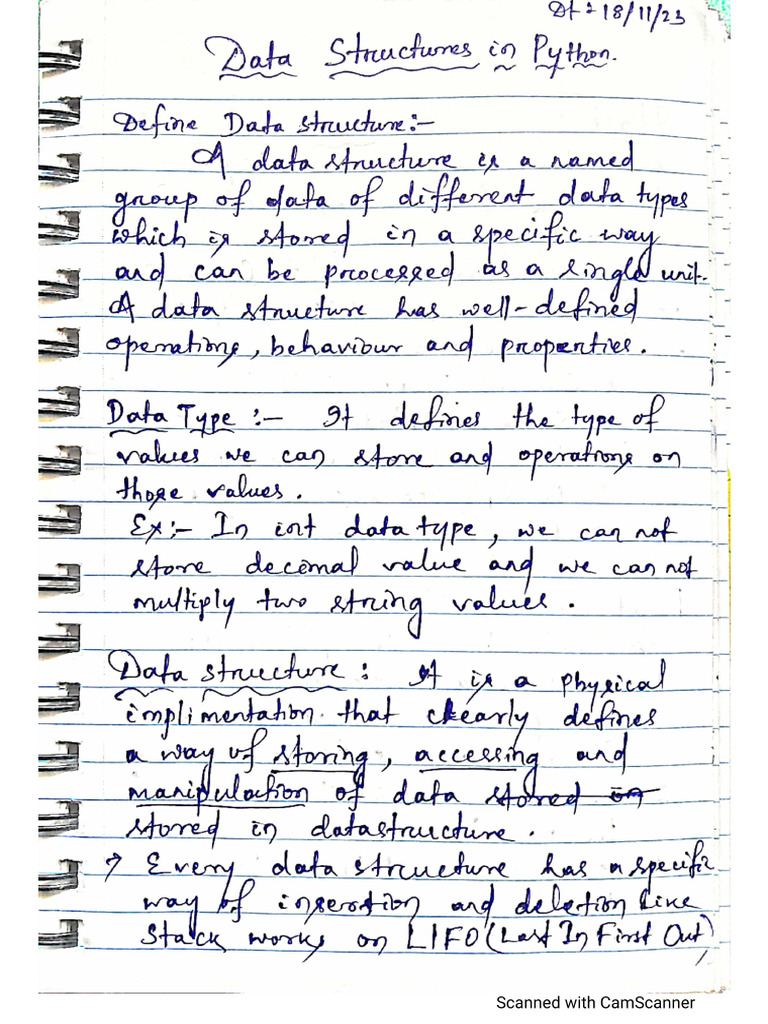 Dt : 18/11/23
Data Structures in Python.
Define Data structure:-
A data structure is a named
group of data of different data types
which is stored in a specific way
and can be processed as a single unit.
A data structure has well-defined
operations, behaviour and properties.
Data Type :- It defines the type of
values we can store and operations on
those values.
Ex:- In int data type, we can not
store decimal value and we can not
multiply two string values.
Data structure : It is a physical
implimentation that clearly defines
a way of storing, accessing and
manipulation of data stored in
stored in datastructure.
→ Every data structure has a specific
way of insertion and deletion like
Stack works on LIFO (Last In First Out),
Scanned with CamScanner